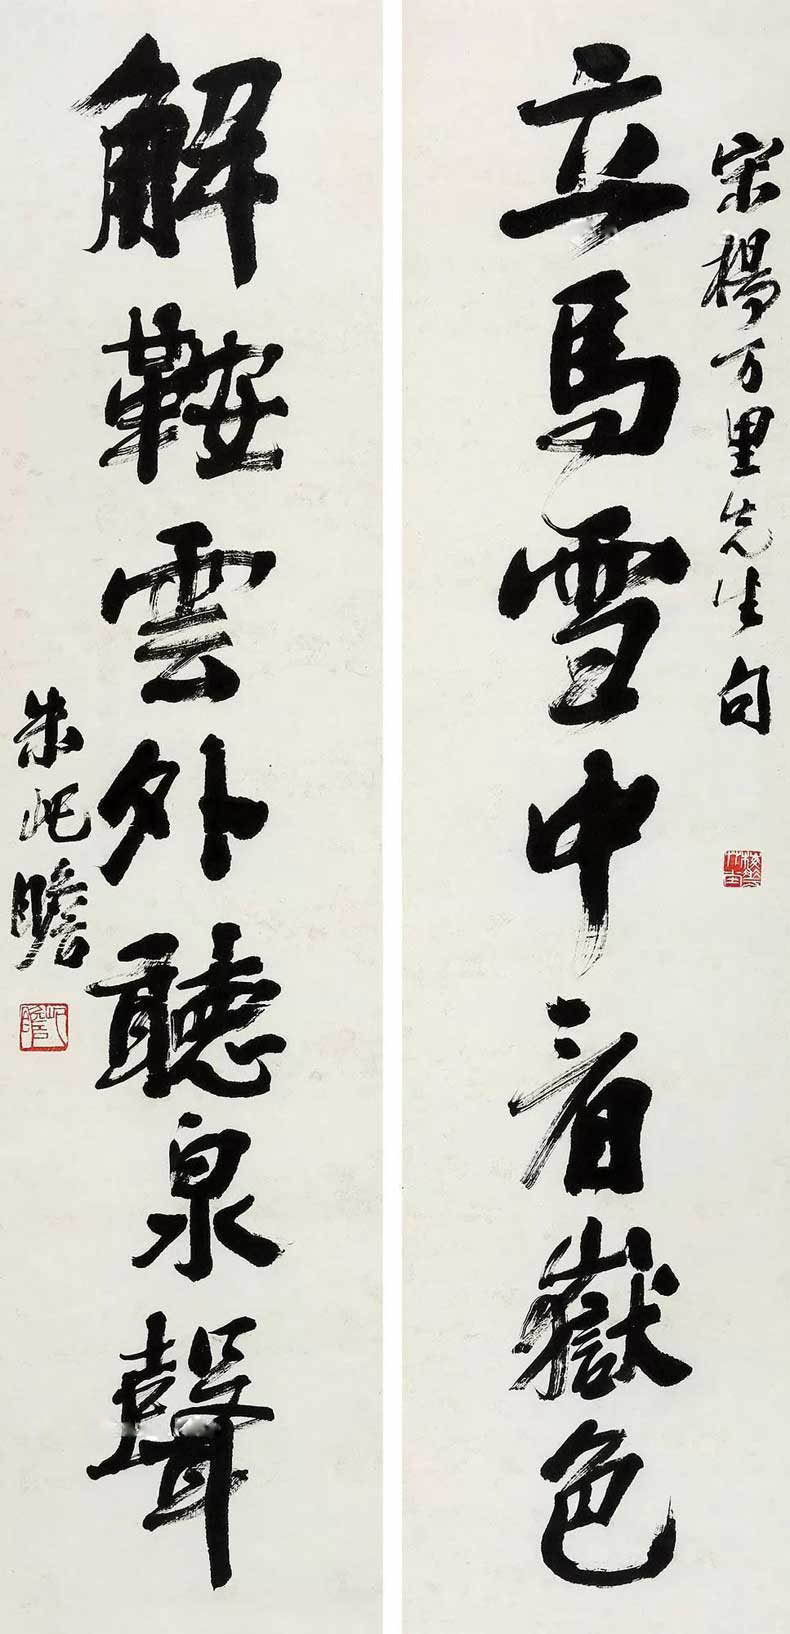 宋楊万里先生句
立馬雪中看嶽色
解鞍雲外聽泉聲
朱屺瞻
屺瞻